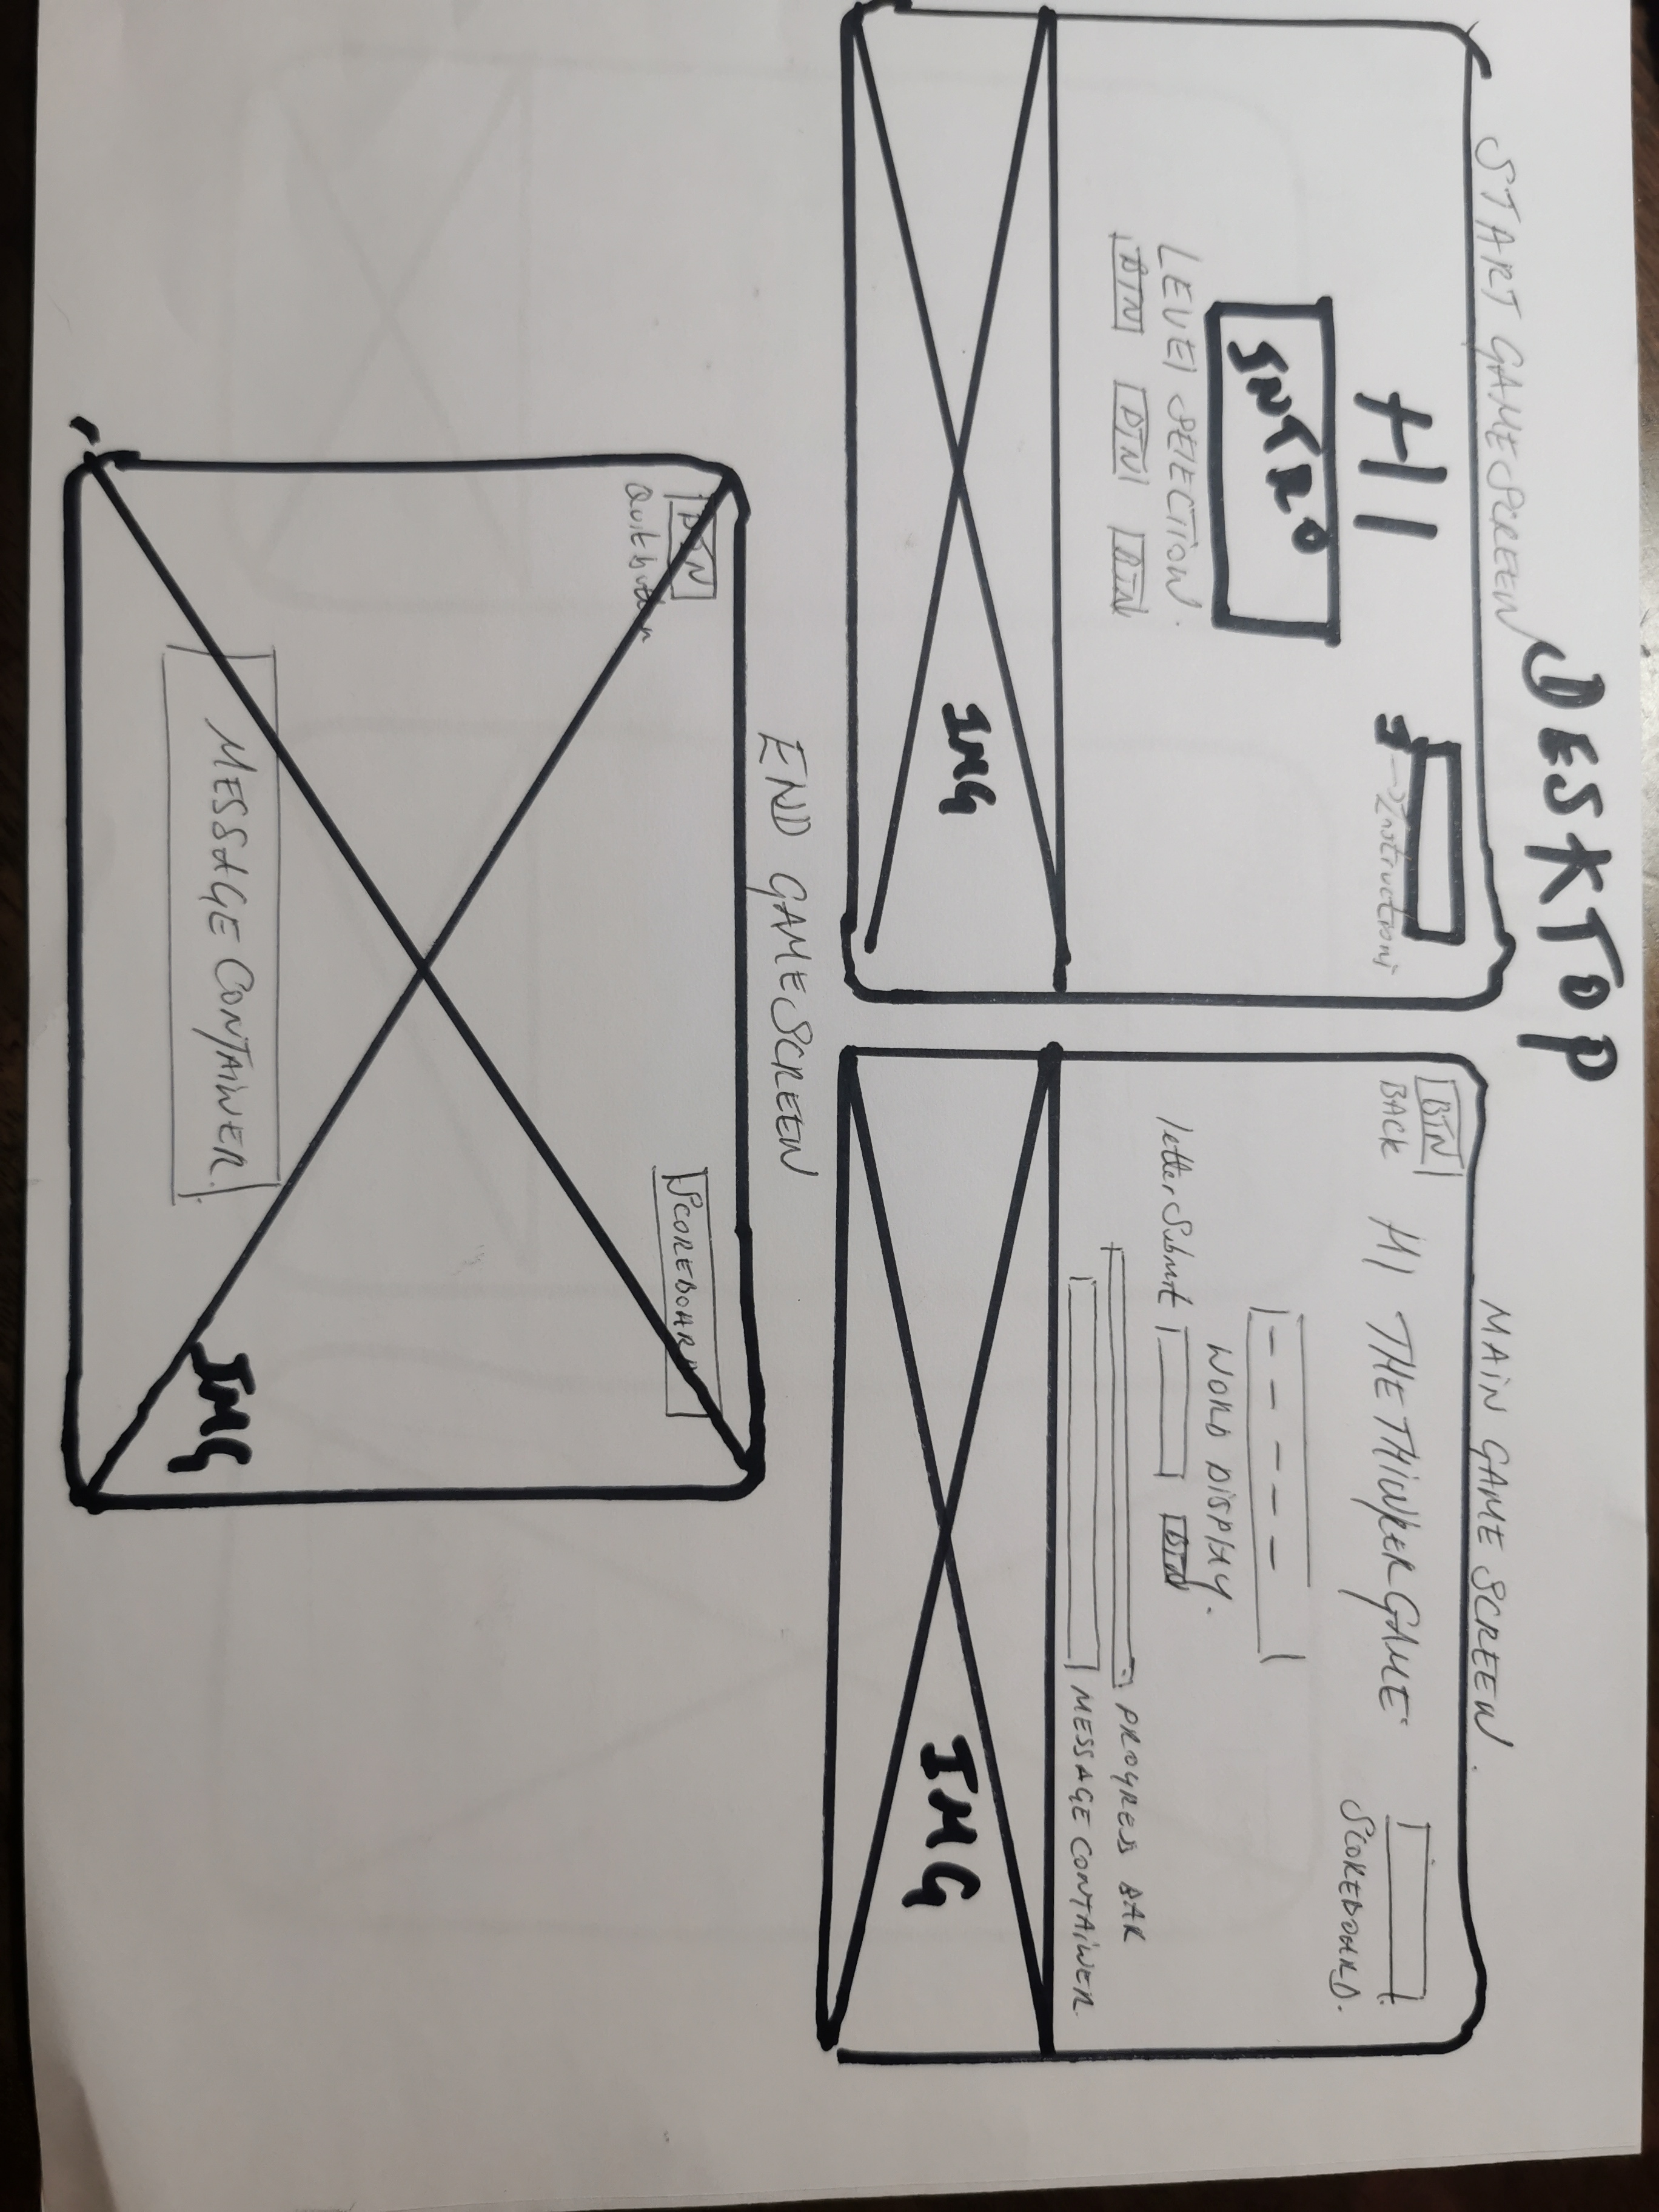 DESKTOP
START GAME SCREEN
H1
Instructions
INTRO
LEVEL SELECTION.
BTN BTN BTN
IMG
MAIN GAME SCREEN.
BTN
BACK
H1 THE THINKER GAME
SCOREBOARD.
WORD DISPLAY.
letter Submit BTN
PROGRESS BAR
MESSAGE CONTAINER
IMG
END GAME SCREEN
BTN
Quit button
SCOREBOARD
MESSAGE CONTAINER.
IMG